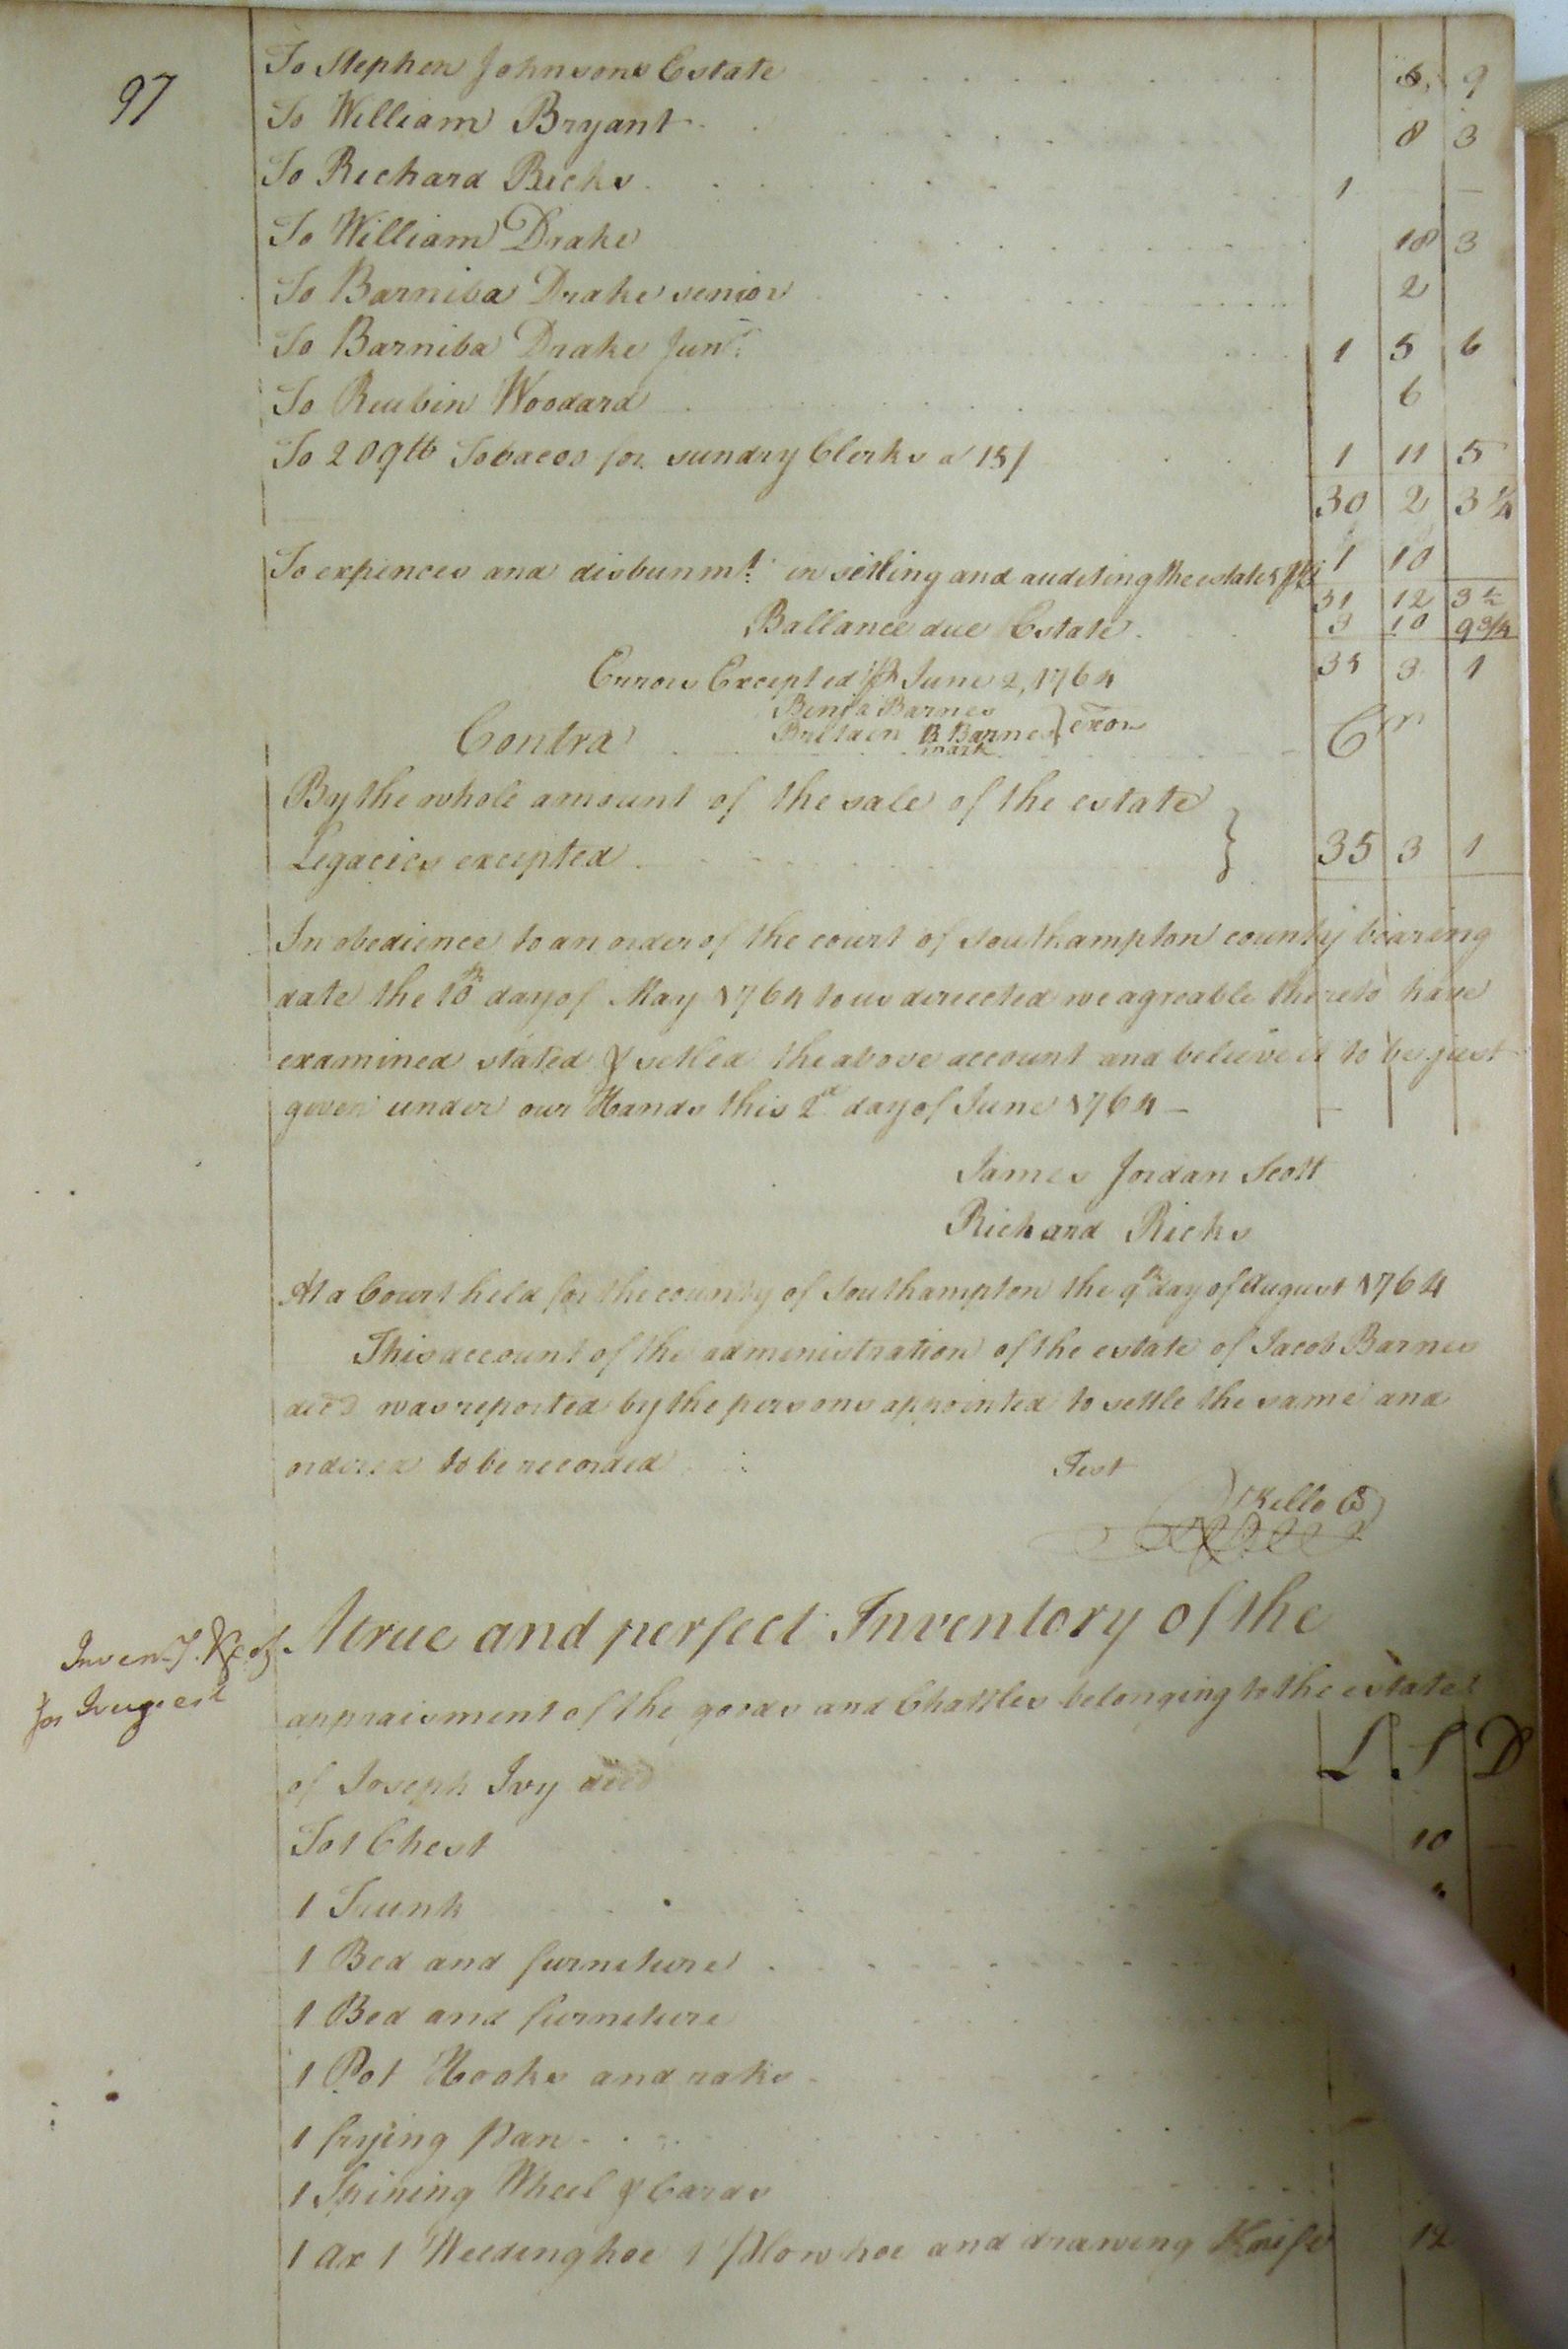 97
To Stephen Johnsons Estate 9
To William Bryant 8 3
To Richard Ricks 1 —
To William Drake 18 3
To Barniba Drake senior 2
To Barniba Drake Junr. 1 5 6
To Reubin Woodard 6
To 209lb Tobacco for sundry Clerks a 15/ 1 11 5
30 2 3 1/4
To expences and disbursmt. in setling and auditing the estate 1 10
31 12 3 1/4
Ballance due Estate 3 10 9 3/4
Errors Excepted June 2, 1764 35 3 1
Benja Barnes
Britain B Barnes } exors
mark
Contra Cr
By the whole amount of the sale of the estate
Legacies excepted } 35 3 1
In obedience to an order of the court of Southampton county bearing
date the 10th day of May 1764 to us directed we agreable thereto have
examined stated & setled the above account and believe it to be just
given under our Hands this 2d day of June 1764 —
James Jordan Scott
Richard Ricks
At a Court held for the county of Southampton the 9th day of August 1764
This account of the administration of the estate of Jacob Barnes
decd was reported by the persons appointed to settle the same and
ordered to be recorded Test
Kello
A true and perfect Inventory of the
appraisment of the goods and Chattles belonging to the estate
of Joseph Ivy decd L S D
To 1 Chest 10
1 Trunk
1 Bed and furniture
1 Bed and furniture
1 Pot Hooks and raks
1 frying pan
1 Spining Wheel & Cards
1 Ax 1 Weedinghoe 1 Plow hoe and drawing Knife 12